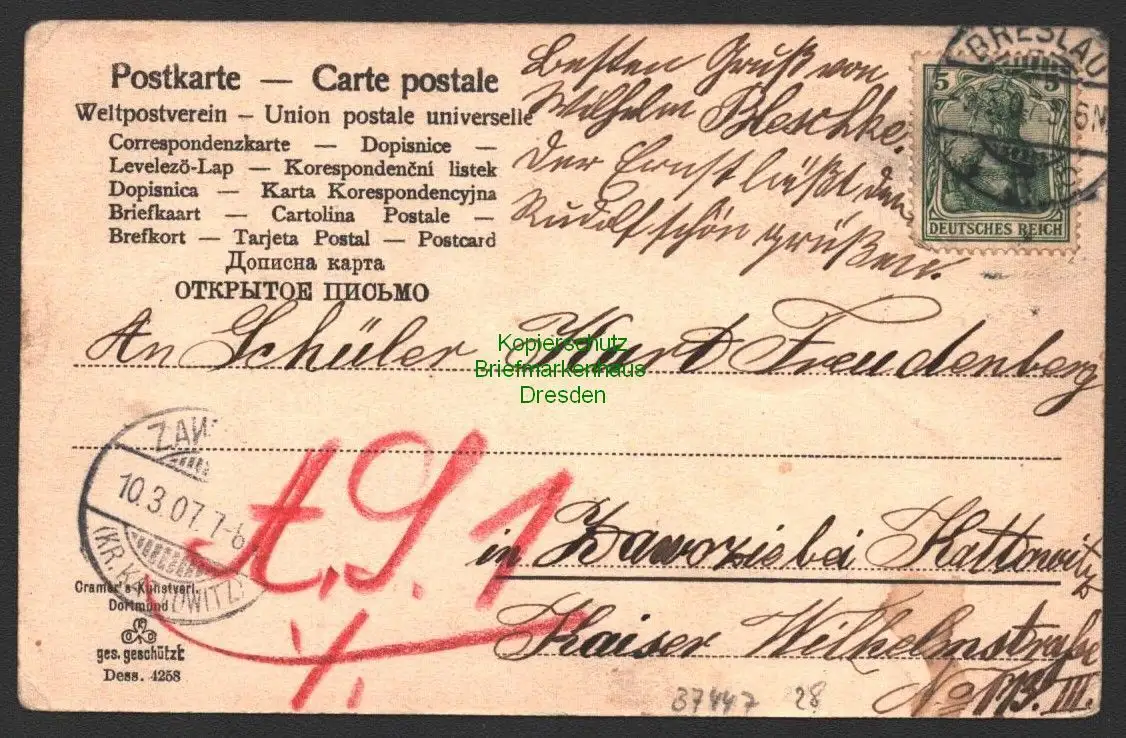 Postkarte — Carte postale
Weltpostverein – Union postale universelle
Correspondenzkarte — Dopisnice —
Levelező-Lap — Korespondenční listek
Dopisnica — Karta Korespondencyjna
Briefkaart — Cartolina Postale —
Brefkort — Tarjeta Postal — Postcard
Дописна карта
ОТКРЫТОЕ ПИСЬМО
Besten Gruß von
Wilhelm Bleschke.
Der Ernst läßt den
Rudolf schön grüßen.
BRESLAU
5 5
DEUTSCHES REICH
An Schüler Kurt Freudenberg
Kopierschutz
Briefmarkenhaus
Dresden
ZAW
10.3.07. 7-8
(KR. KATTOWITZ)
in Zawozie bei Kattowitz
Kaiser Wilhelmstraße
No 173. III.
Cramer's Kunstverl.
Dortmund
ges. geschützt
Dess. 4258
37447 28